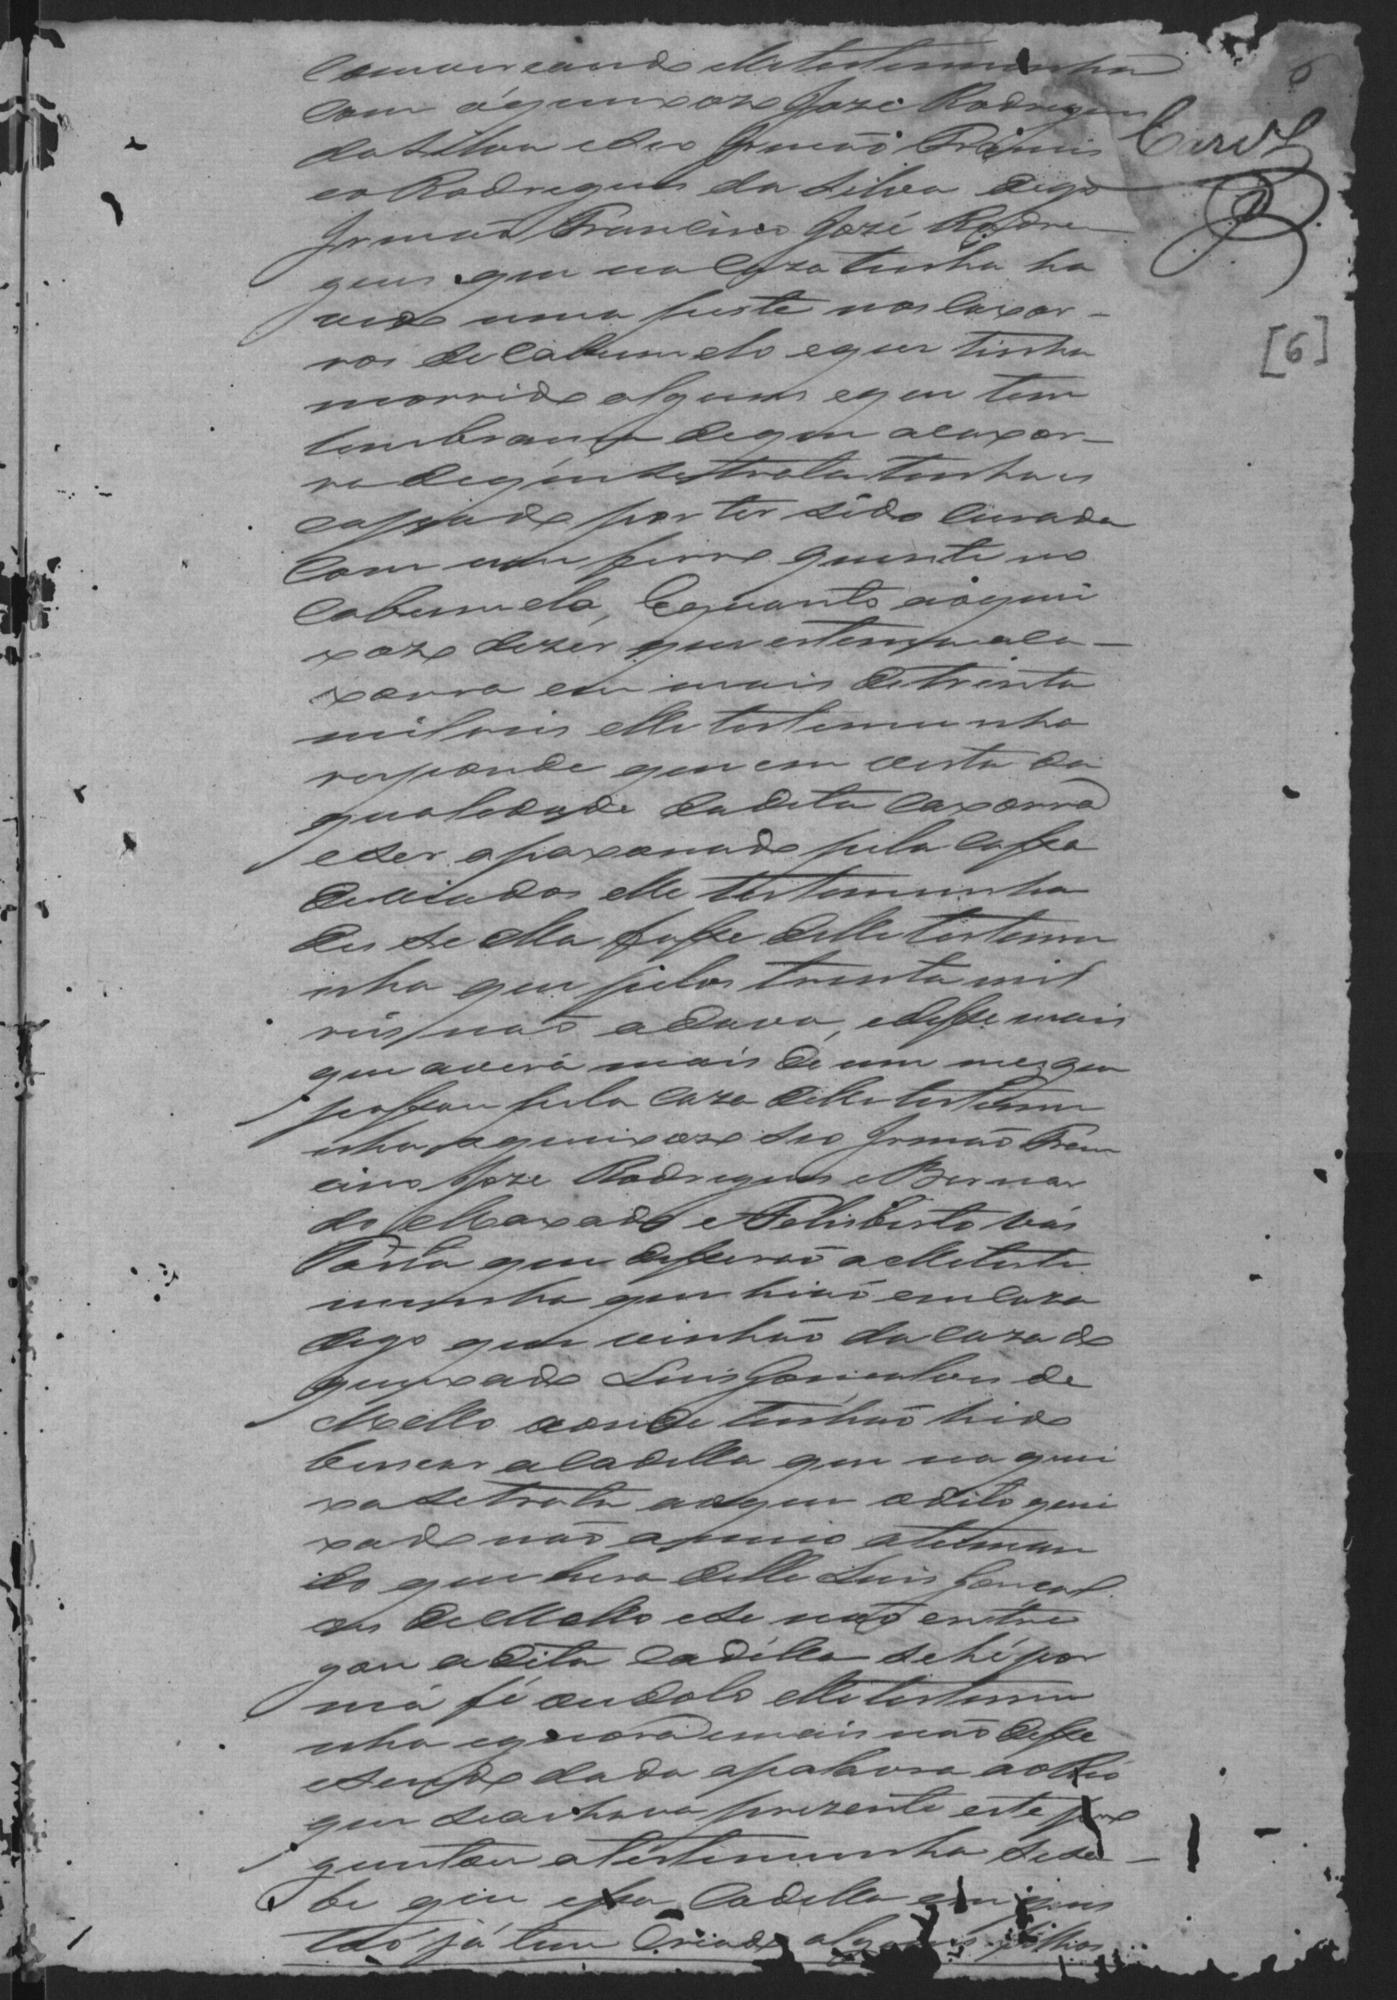 6
Carv
[6]
Comvercando elle testemunha
com o queixozo Joze Rodrigues
da Silva e seo Irmão Francis
co Rodrigues da Silva digo
Irmão Francisco José Rodri
gues que na caza tinha ha
vido uma peste nos caxor-
ros de Cabunclo e que tinha
morrido alguns e que tem
lembrança de que a caxor-
ra de que se trata tinha es
capado por ter sido curada
com um ferro quente no
Cabunclo, Equanto ao quei
xozo dezer que estema a ca-
xorra em mais de trinta
mil reis elle testemunha
responde que em vista da
qualidade da dita Caxorra
e ser apaxonado pela cassa
de viados elle testemunha
dis se ella fosse delle testemu
nha que pelos trinta mil
reis não a dava, e disse mais
que averá mais de um mez que
passou pela caza delle testemu
nha o queixozo seo Irmão Fran
cisco Joze Rodrigues e Bernar
do Maxado e Felisberto
que disserão a elle teste
munha que hião em caza
digo que vinhão da caza do
queixado Luis Gonsalves de
Mello aonde tinhão hido
buscar a cadella que na quei
xa se trata ao que o dito quei
xado não anuio ateiman
do que hera delle Luis Gonçal
ves de Mello e se não entre
gou a dita cadella se hé por
má fé ou dolo elle testemu
nha ignora e mais não disse
e sendo dada a palavra ao Reo
que se achava prezente este per
guntou a testemunha se sa-
be que essa Cadella em ques
tão já tem Criado alguns filhos